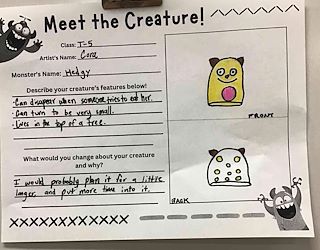 Meet the Creature!
Class: T-5
Artist's Name: Cora
Monster's Name: Hedgy
Describe your creature's features below!
·Can disapear when someone tries to eat her.
·Can turn to be very small.
·Lives in the top of a tree.
What would you change about your creature
and why?
I would probably plan it for a little
longer, and put more time into it.
FRONT
BACK